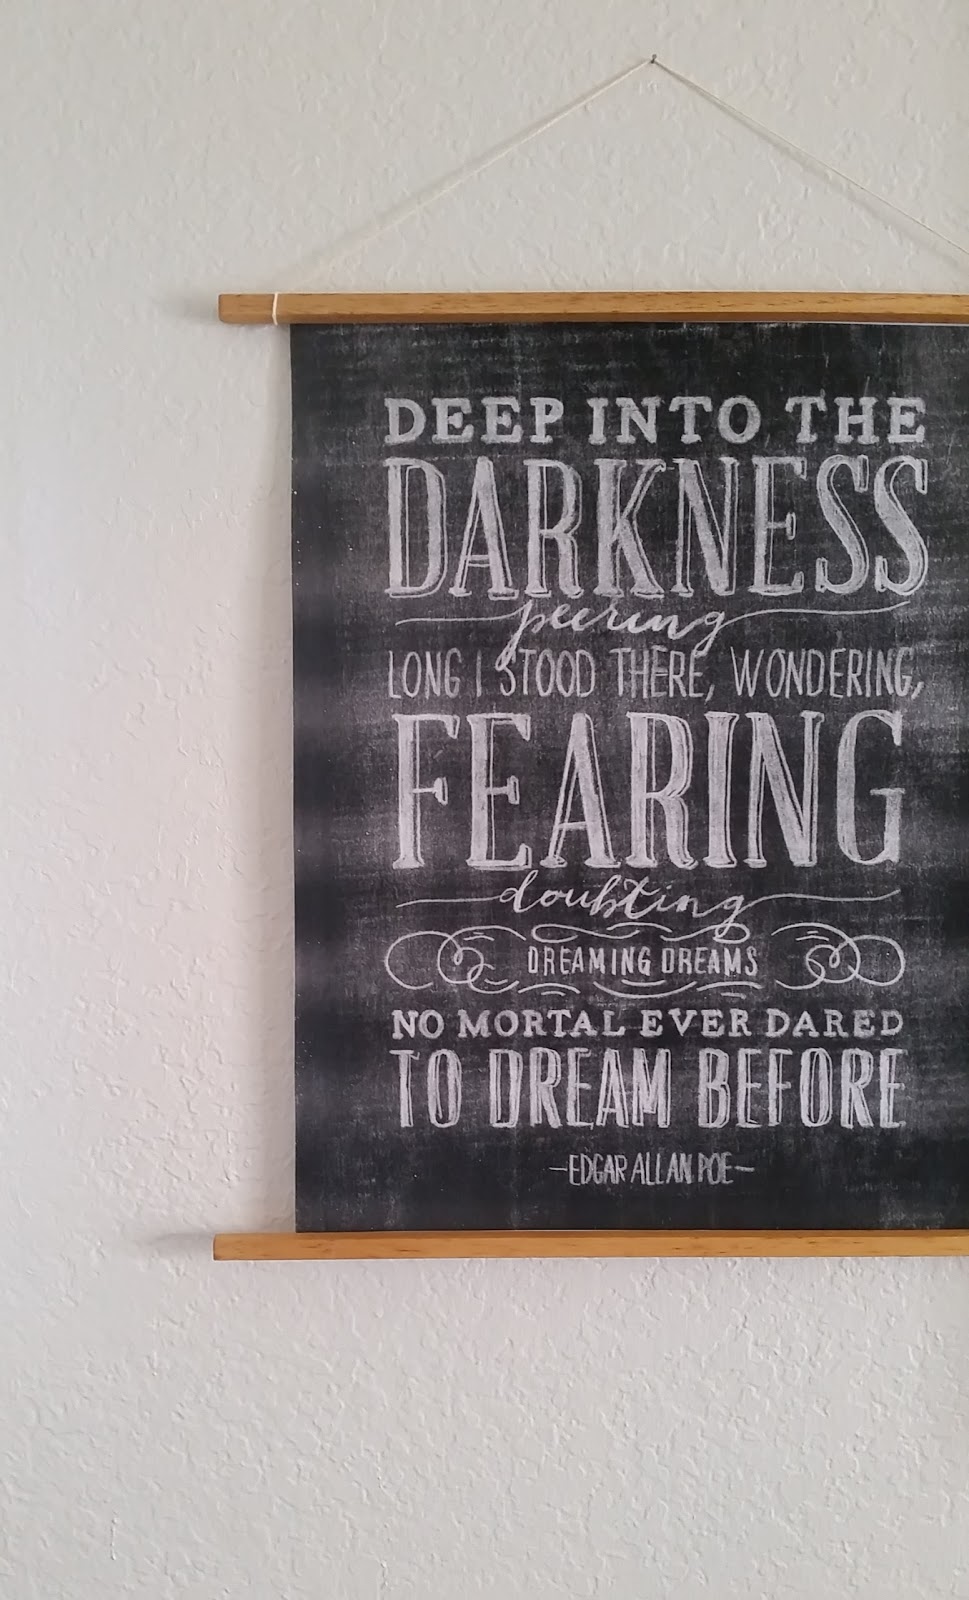 DEEP INTO THE
DARKNESS
peering
LONG I STOOD THERE, WONDERING,
FEARING
doubting
DREAMING DREAMS
NO MORTAL EVER DARED
TO DREAM BEFORE
—EDGAR ALLAN POE—